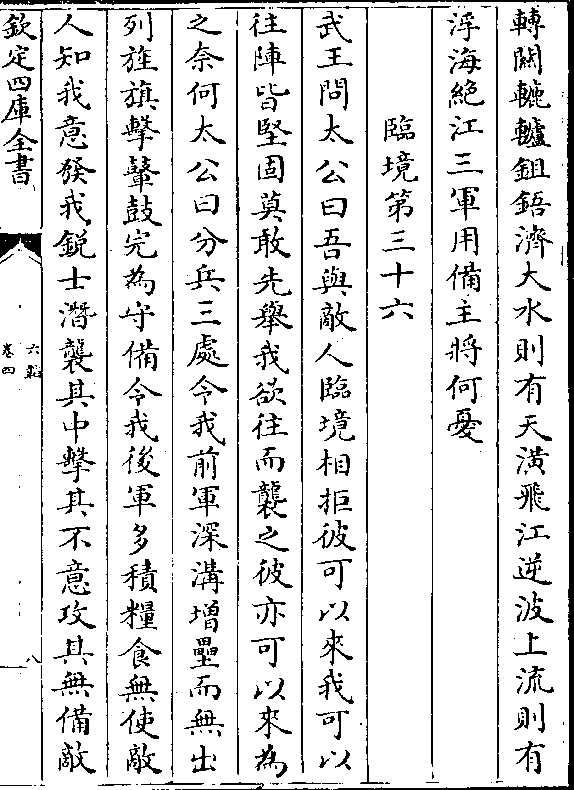 轉闗轆轤鉏鋙濟大水則有天潢飛江逆波上流則有
浮海絶江三軍用備主將何憂
臨境第三十六
武王問太公曰吾與敵人臨境相拒彼可以來我可以
往陣皆堅固莫敢先舉我欲往而襲之彼亦可以來為
之奈何太公曰分兵三處令我前軍深溝增壘而無出
列旌旗擊鼙鼓完為守備令我後軍多積糧食無使敵
人知我意發我銳士潛襲其中擊其不意攻其無備敵
欽定四庫全書
六韜
卷四
八